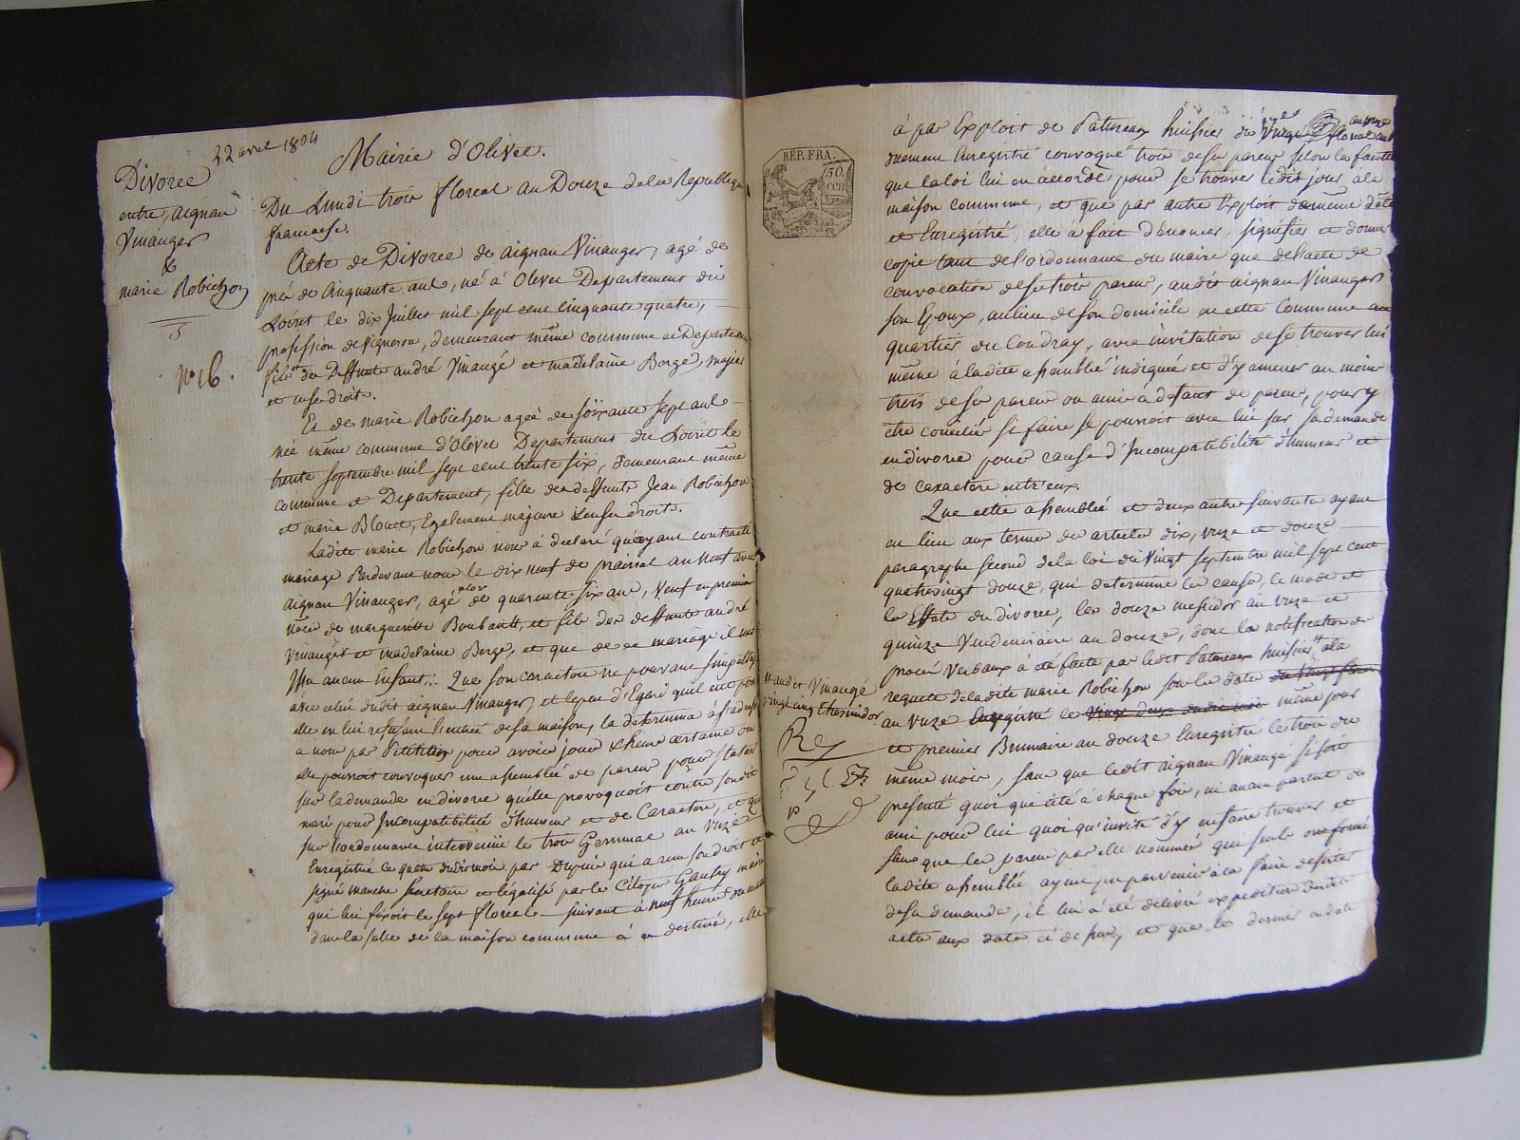 22 avril 1804
Mairie d'Olivet.
Divorce
entre, aignan
Vinauger
&
marie Robichon
n° 16.
Du Lundi trois floreal an Douze de la Republique
francaise.
Acte de Divorce de aignan Vinauger, agé de
près de Cinquante ans, né à Olivet Departement du
Loiret le dix Juillet mil sept cent cinquante quatre,
profession de vigneron, demeurant même commune et Departement
fils des Deffunts andré Vinaugé et madelaine Berge, majeur
et usen droit.
Et de marie Robichon ageé de soixante sept ans
née même commune d'Olivet Departement du Loiret le
trente septembre mil sept cent trente six, demeurant même
commune et Departement, fille des deffunts Jean Robichon
et marie Blouet, Egalement majeure droit.
Ladite marie Robichon nous à declaré qu'ayant contracté
mariage Pardevant nous le dix neuf de prairial an neuf avec
aignan Vinauger, agé alors de quarente six ans, Veuf en premiere
nôce de marguerite et fils des deffunts andré
Vinauger et madelaine Berge, et que de ce mariage il n'est
aucun Enfant. Que son caractere ne pouvant
avec celui dudit aignan Vinauger, et le peu d'Egard qu'il eut pour
elle en lui refusant l'entrée de sa maison, la determina à
a nous par Petition pour avoir jour & heure certaine ou
elle pourroit convoquer une assemblée de parens pour statuer
sur la demande en divorce qu'elle provoquoit contre son dit
mari pour Incompatibilité d'humeur et de Caractere, et que
sur l'ordonnance intervenue le trois Germinal an onze
Enregistré le quatre dudit mois par Dupuis qui a reçu son droit et
signé manche secretaire et légalisé par le Citoyen maire
qui lui fixoit le sept floreal suivant à neuf heures du matin
dans la salle de la maison commune à ce destiné, elle
RÉP. FRA.
50
CEN
à par Exploit de Patureau huissier du
Enregistré convoqué trois de ses parens selon la faculté
que la loi lui en accorde pour se trouver ledit jour à la
maison commune, et que par autre Exploit de même date
et Enregistré, elle à fait dénoncer, signifier et donner
copie tant de l'ordonnance du maire que de l'acte de
convocation de ses trois parens, audit aignan Vinauger
son Epoux, au lieu de son domicile en cette Commune au
quartier du Coudray, avec invitation de se trouver lui
même à ladite assemblée indiquée et d'y amener au moins
trois de ses parens ou amis à defaut de parens, pour y
être concilier si faire se pouvoit avec lui sur sa demande
en divorce pour cause d'Incompatibilité d'humeur et
de caractere entr'eux.
Que cette assemblée et deux autres suivantes ayant
eu lieu aux termes des articles dix, onze et douze
paragraphe second de la loi du Vingt septembre mil sept cent
quatrevingt douze, qui determine les causes, le mode et
les Effets du divorce, les douze messidor an onze et
quinze Vendemiaire an douze, dont la notification des
procès Verbaux à été faite par ledit Patureau huissier à la
requete de ladite marie Robichon sous les dates
audit Vinaugé
vingt cinq thermidor
an onze Enregistré le même jour
et premier Brumaire an douze Enregistré le trois du
même mois, sans que ledit aignan Vinaugé se soit
presenté quoi que cité à chaque fois, ni aucun parent ou
ami pour lui quoi qu'invité d'y en faire trouver et
sans que les parens par elle nommés qui seuls ont formé
ladite assemblée ayent pu parvenir à la faire desister
de sa demande, il lui à été delivré expedition dudit
acte aux dates ci dessus, et que le dernier en date